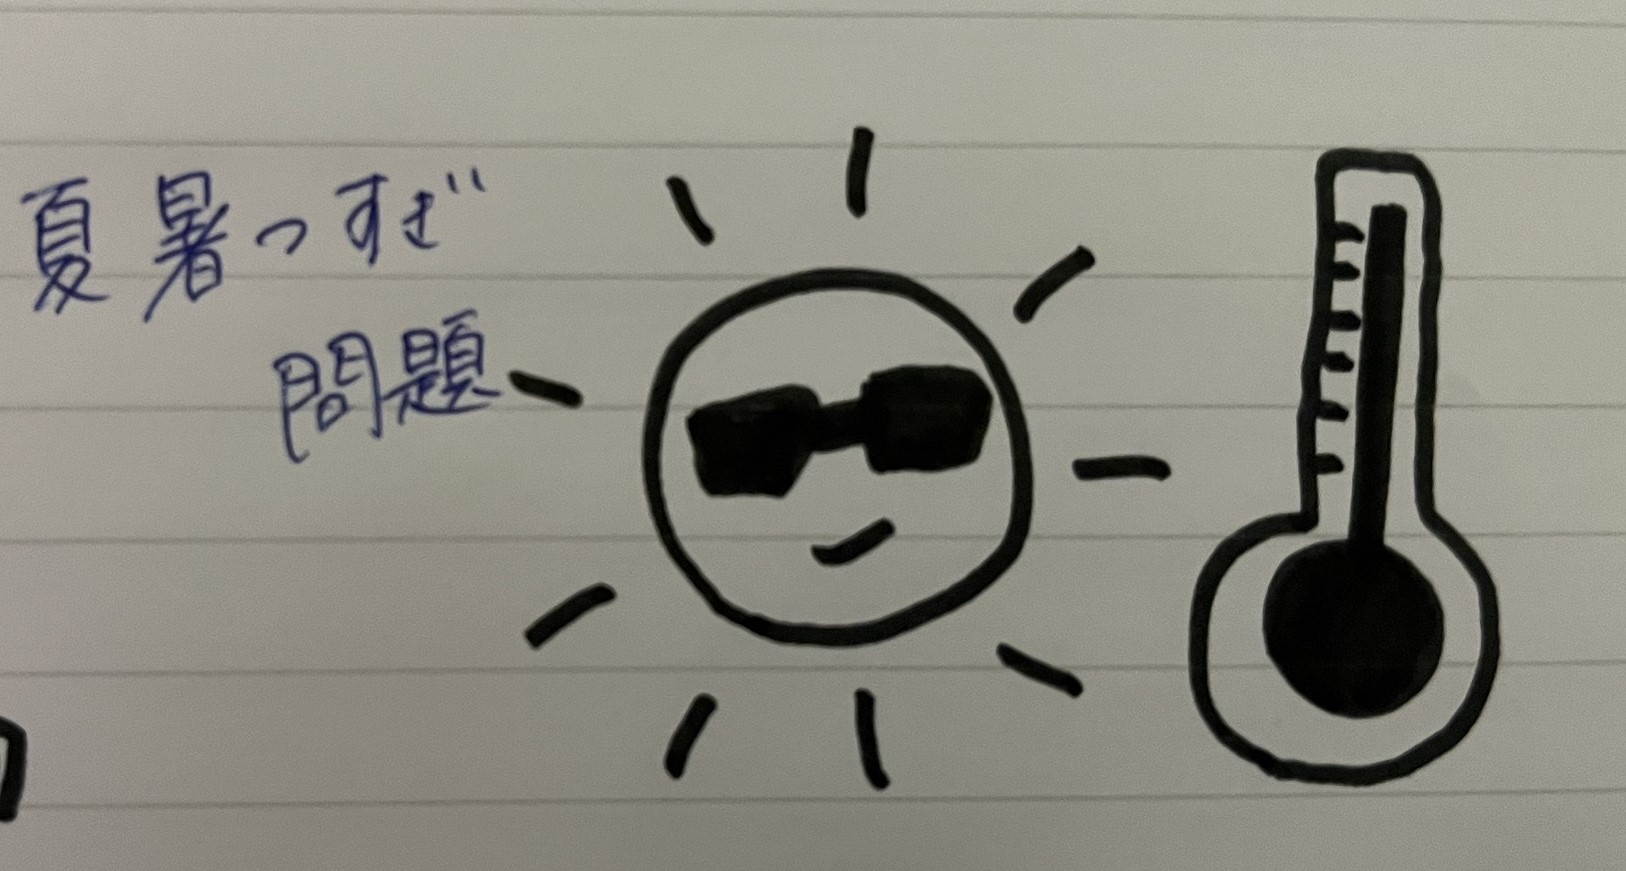 夏暑っすぎ
問題